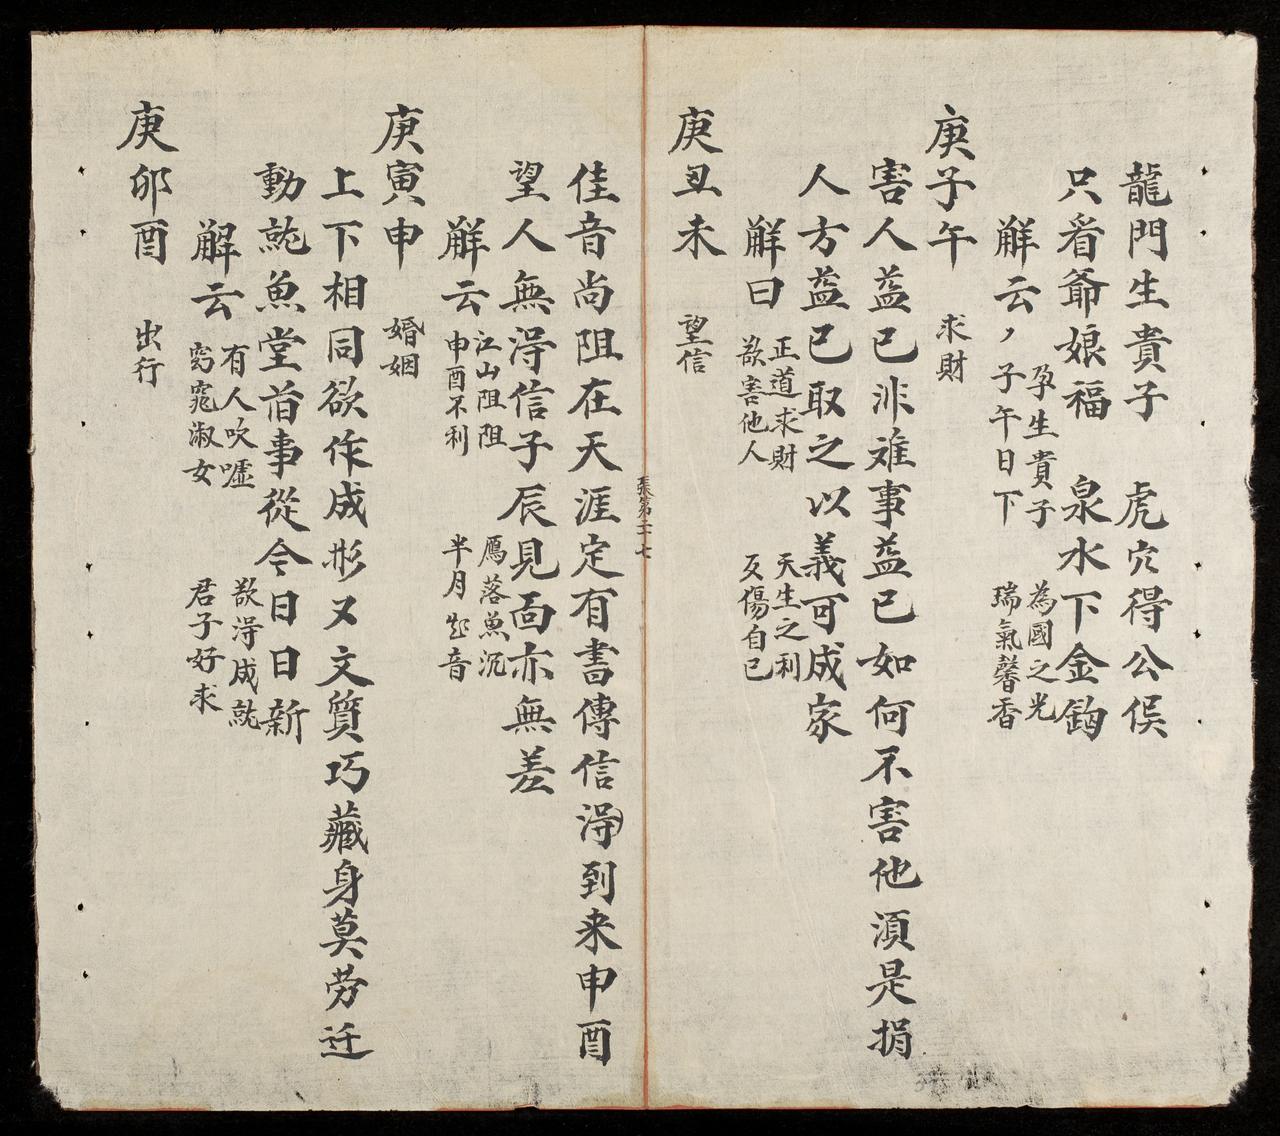 龍門生貴子　虎穴得公侯
只看爺娘福　泉水下金鈎
解云
孕生貴子　為國之光
子午日下　瑞氣馨香
庚子午　求財
害人益已非难事益已如何不害他須是捐
人方益已取之以義可成家
解曰
正道求財　天生之利
欲害他人　反傷自已
庚丑未　望信
張第二十七
佳音尚阻在天涯定有書傳信淂到来申酉
望人無淂信子辰見面亦無差
解云
江山阻阻　鴈落魚沉
申酉不利　半月音
庚寅申　婚姻
上下相同欲作成形又文質巧藏身莫劳迁
動就魚堂前事從今日日新
解云
有人吹噓　欲淂成就
窈窕淑女　君子好求
庚卯酉　出行